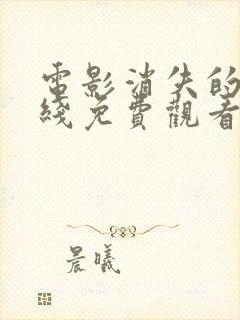 電影消失的
綫免費觀看
晨曦